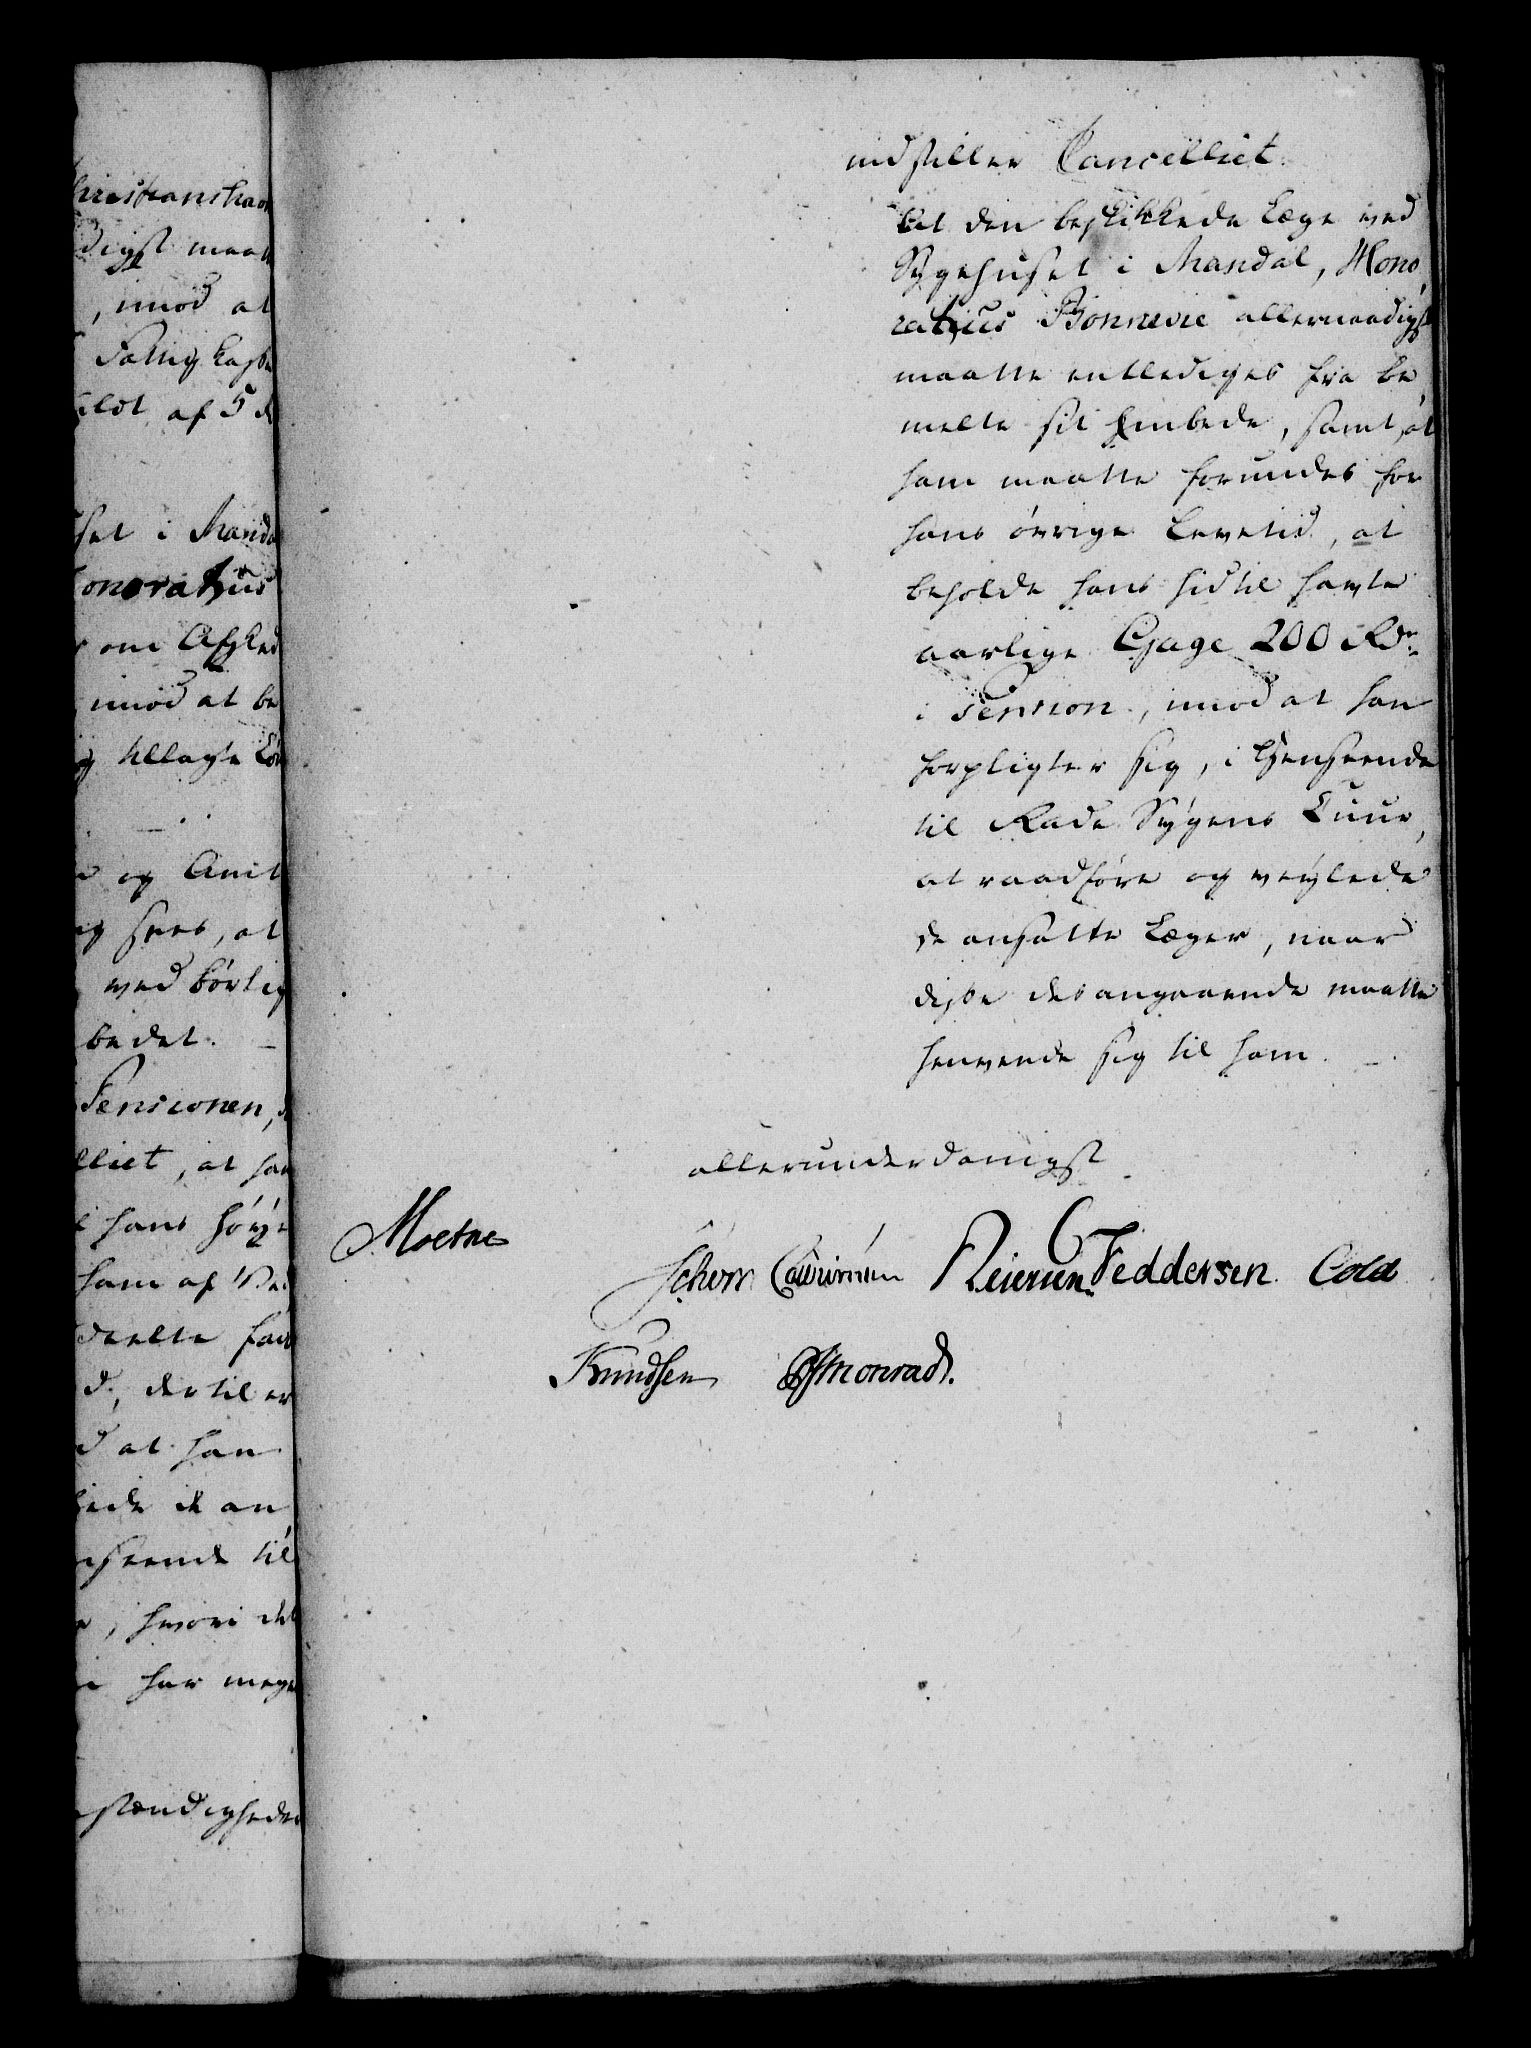 hristianshavn
digst maatte
, imod at
Fattig Kasse
ildt af 5 d
set i Manda
onoratius
om Afsked
imod at be
tillagte Løn
og Amt
sees, at
ved kørlig
bedet. –
Pensionen,
lliet, at han
hans høye
ham af
deelte
d, der til er
d at han
de an
seende til
, hvori det
har meget
stændigheder
indstiller Cancelliet:
at den beskikkede Læge ved
Sygehuset i Mandal, Hono
ratius Bonnevie allernaadigst
maatte entlediges fra be
melte sit Embede, samt, at
ham maatte forundes for
hans øvrige Levetid, at
beholde hans hidtil havte
aarlige Gage 200 Rdr
i Pension, imod at han
forpligter sig, i Henseende
til Rade Sygens Cuur,
at raadføre og veylede
de ansatte Læger, naar
disse desangaaende maatte
henvende sig til ham. –
allerunderdanigst
Moestue
Schow Lowumm Reiersen Feddersen Cold
Knudsen Monrad.